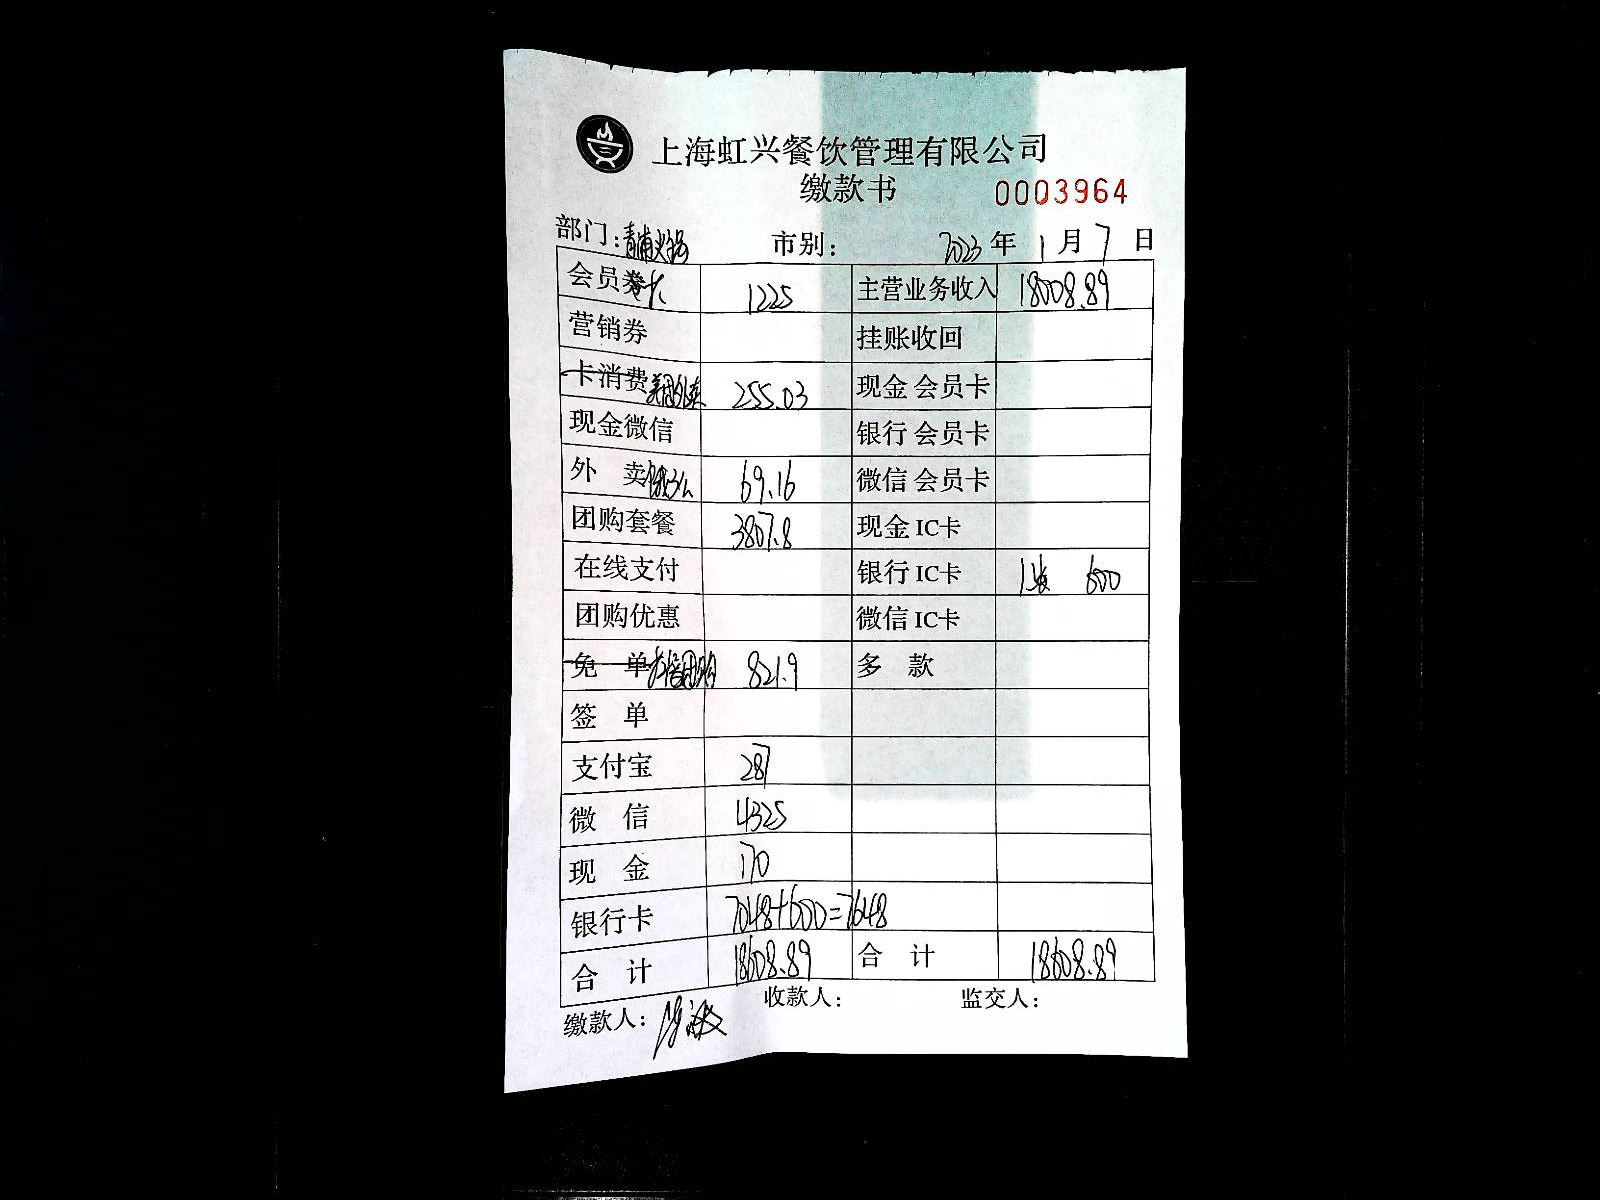 上海虹兴餐饮管理有限公司
缴款书 0003964
部门：青浦火锅 市别： 2023 年 1 月 7 日
会员卡 1225 主营业务收入 18008.89
营销券 挂账收回
卡消费 美团外卖 255.03 现金 会员卡
现金微信 银行 会员卡
外 卖 饿了么 69.16 微信 会员卡
团购套餐 3807.8 现金 IC卡
在线支付 银行 IC卡 1张 600
团购优惠 微信 IC卡
免 单 抖音团购 821.9 多 款
签 单
支付宝 287
微 信 4325
现 金 170
银行卡 7048+600=7648
合 计 18608.89 合 计 18608.89
收款人： 监交人：
缴款人：